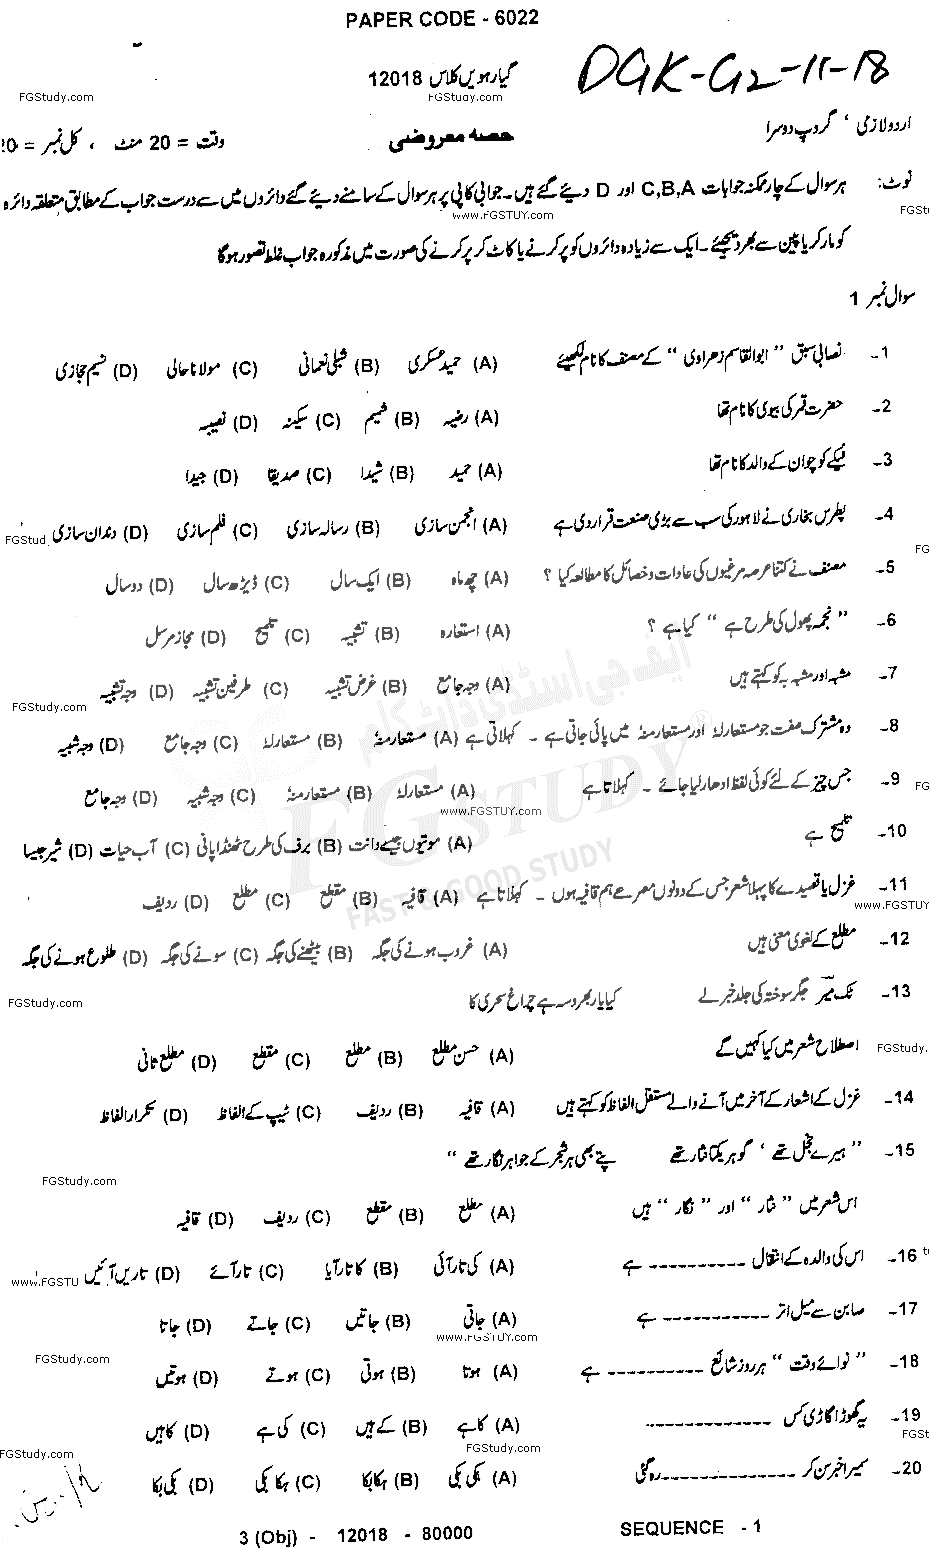 PAPER CODE - 6022
DGK-G2-11-18
گیارہویں کلاس 12018
FGStudy.com
FGStudy.com
اردو لازمی ، گروپ دوسرا
حصہ معروضی
وقت = 20 منٹ ، کل نمبر = 20
نوٹ: ہر سوال کے چار ممکنہ جوابات C,B,A اور D دیئے گئے ہیں۔ جوابی کاپی پر ہر سوال کے سامنے دیئے گئے دائروں میں سے درست جواب کے مطابق متعلقہ دائرہ
www.FGSTUY.com
FGSt
کو مارکر یا پین سے بھر دیجئے۔ ایک سے زیادہ دائروں کو پر کرنے یا کاٹ کر پر کرنے کی صورت میں مذکورہ جواب غلط تصور ہوگا
سوال نمبر 1
1۔ نصابی سبق " ابوالقاسم زھراوی " کے مصنف کا نام لکھیئے (A) حمید عسکری (B) شبلی نعمانی (C) مولانا حالی (D) نسیم حجازی
2۔ حضرت قمر کی بیوی کا نام تھا (A) رضیہ (B) شمیم (C) سکینہ (D) نصیبہ
3۔ فیکے کوچوان کے والد کا نام تھا (A) حمید (B) شیدا (C) صدیقا (D) جیدا
4۔ پطرس بخاری نے لاہور کی سب سے بڑی صنعت قرار دی ہے (A) انجمن سازی (B) رسالہ سازی (C) فلم سازی (D) دندان سازی
FGStud
FG
5۔ مصنف نے کتنا عرصہ مرغیوں کی عادات و خصائل کا مطالعہ کیا ؟ (A) چھ ماہ (B) ایک سال (C) ڈیڑھ سال (D) دو سال
6۔ " نجمہ پھول کی طرح ہے " کیا ہے ؟ (A) استعارہ (B) تشبیہ (C) تلمیح (D) مجاز مرسل
ایف جی اسٹڈی ڈاٹ کام
7۔ مشبہ اور مشبہ بہ کو کہتے ہیں (A) وجہ جامع (B) غرض تشبیہ (C) طرفین تشبیہ (D) وجہ تشبیہ
FGStudy.com
8۔ وہ مشترک صفت جو مستعارلہٗ اور مستعار منہٗ میں پائی جاتی ہے ۔ کہلاتی ہے (A) مستعار منہٗ (B) مستعارلہٗ (C) وجہ جامع (D) وجہ شبیہ
FG STUDY®
9۔ جس چیز کے لئے کوئی لفظ ادھار لیا جائے ۔ کہلاتا ہے (A) مستعارلہٗ (B) مستعار منہٗ (C) وجہ شبیہ (D) وجہ جامع
www.FGSTUY.com
FG
10۔ تلمیح ہے (A) موتیوں جیسے دانت (B) برف کی طرح ٹھنڈا پانی (C) آب حیات (D) شیر جیسا
FAST & GOOD STUDY
11۔ غزل یا قصیدے کا پہلا شعر جس کے دونوں مصرعے ہم قافیہ ہوں ۔ کہلاتا ہے (A) قافیہ (B) مقطع (C) مطلع (D) ردیف
www.FGSTUY
12۔ مطلع کے لغوی معنی ہیں (A) غروب ہونے کی جگہ (B) بیٹھنے کی جگہ (C) سونے کی جگہ (D) طلوع ہونے کی جگہ
13۔ ٹک میرؔ جگر سوختہ کی جلد خبر لے کیا یار بھروسہ ہے چراغ سحری کا
FGStudy.com
اصطلاح شعر میں کیا کہیں گے (A) حسن مطلع (B) مطلع (C) مقطع (D) مطلع ثانی
FGStudy.
14۔ غزل کے اشعار کے آخر میں آنے والے مستقل الفاظ کو کہتے ہیں (A) قافیہ (B) ردیف (C) ٹیپ کے الفاظ (D) تکرار الفاظ
15۔ " ہیرے خجل تھے ' گوہر یکتا نثار تھے پتے بھی ہر شجر کے جواہر نگار تھے "
FGStudy.com
اس شعر میں " نثار " اور " نگار " ہیں (A) مطلع (B) مقطع (C) ردیف (D) قافیہ
16۔ اس کی والدہ کے انتقال ---------- ہے (A) کی تار آئی (B) کا تار آیا (C) تار آئے (D) تاریں آئیں
www.FGSTU
17۔ صابن سے میل اتر ---------- ہے (A) جاتی (B) جاتیں (C) جاتے (D) جاتا
www.FGSTUY.com
18۔ " نوائے وقت " ہر روز شائع ---------- ہے (A) ہوتا (B) ہوتی (C) ہوتے (D) ہوتیں
FGStudy.com
19۔ یہ گھوڑا گاڑی کس ---------- (A) کا ہے (B) کے ہیں (C) کی ہے (D) کا ہیں
FGSt
FGStudy.com
FGStudy.com
20۔ سمیرا خبر سن کر ---------- رہ گئی (A) ہکی بکی (B) ہکا بکا (C) ہکا بکی (D) ہکی بکا
3 (Obj) - 12018 - 80000
SEQUENCE - 1